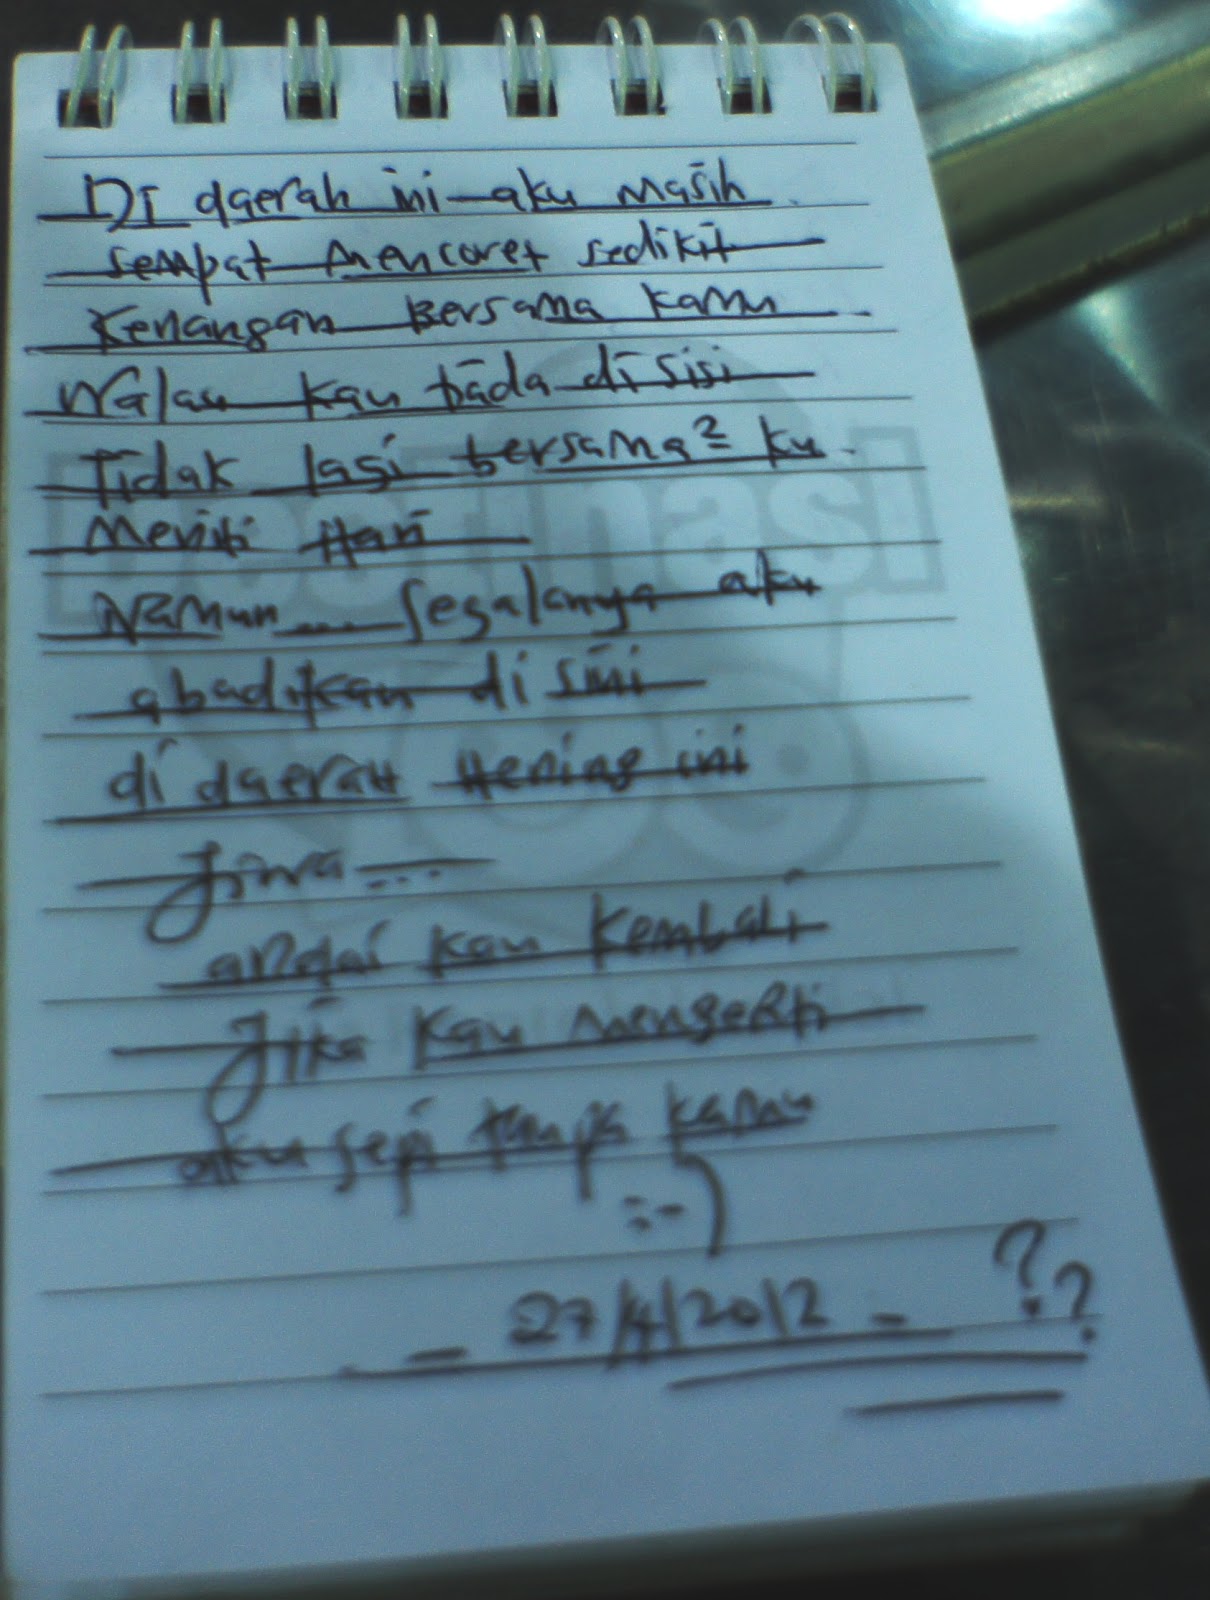 DI daerah ini aku masih
sempat mencoret sedikit
Kenangan Bersama Kamu
Walau kau tiada di sisi
Tidak lagi bersama² ku
Meniti Hari
Namun.... segalanya aku
abadikan di sini
di daerah Hening ini
Jiwa....
andai kau kembali
Jika kau mengerti
aku sepi tanpa kamu
:-)
- 27/4/2012 - ??
Destinasi